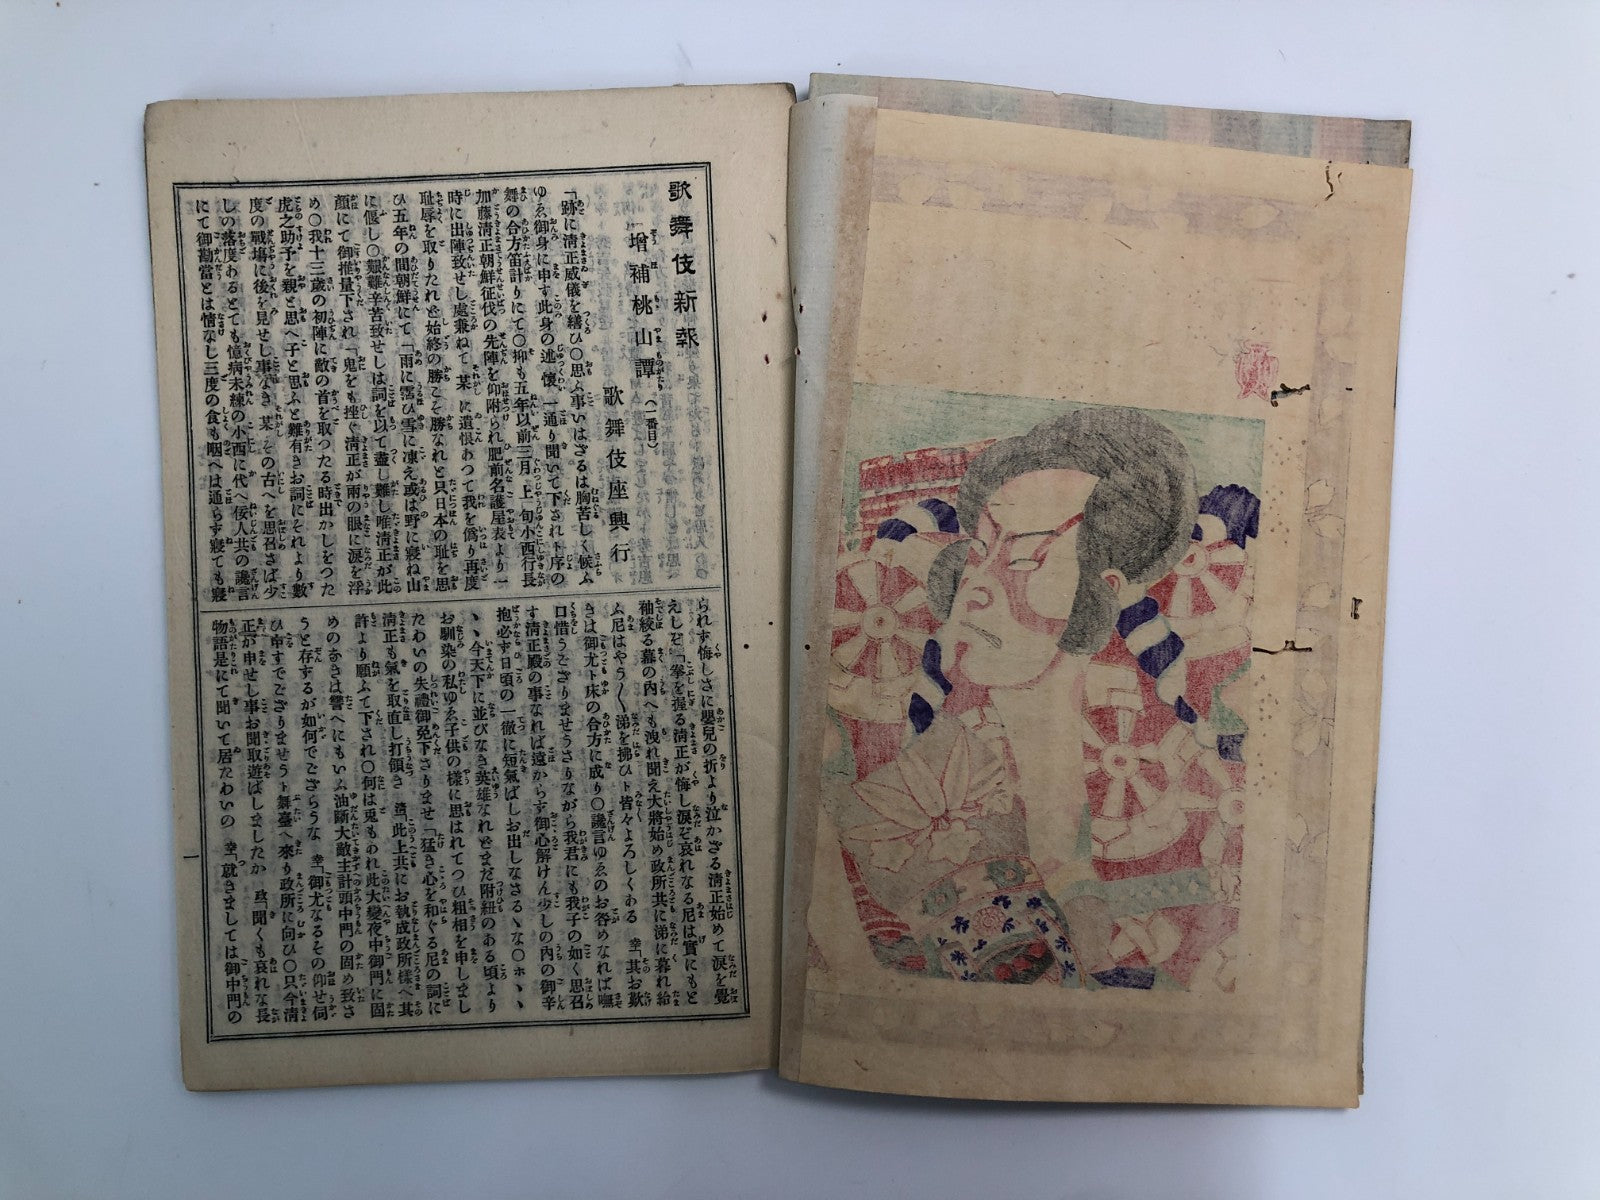 歌舞伎新報
増補桃山譚（一番目）
歌舞伎座興行
「跡に清正威儀を繕ひ〇思ふ事いはざるは胸苦しく候ふ
ゆゑ御身に申す此身の述懐一通り聞いて下されト序の
舞の合方笛計りにて〇抑も五年以前三月上旬小西行長
加藤清正朝鮮征伐の先陣を仰附られ肥前名護屋表より一
時に出陣致せし處兼ねて某に遺恨あつて我を僞り再度
耻辱を取りたれど始終の勝こそ勝なれと只日本の耻を思
ひ五年の間朝鮮にて「雨に霑ひ雪に凍え或は野に寢ね山
に偃し〇艱難辛苦致せしは詞を以て盡し難し唯清正が此
顏にて御推量下され「鬼をも挫ぐ清正が兩の眼に涙を浮
め〇我十三歳の初陣に敵の首を取つたる時出かしをつた
虎之助予を親と思へ子と思ふと難有きお詞にそれより數
度の戰塲に後を見せし事なき某その古へを思召さば少
しの落度あるとても憶病未練の小西に代へ佞人共の讒言
にて御勘當とは情なし三度の食も咽へは通らず寢ても寢
られず悔しさに嬰兒の折より泣かざる清正始めて涙を覺
えしぞ「拳を握る清正が悔し涙ぞ哀れなる尼は實にもと
袖絞る幕の内へも洩れ聞え大將始め政所共に涕に暮れ給
ふ尼はやう〱涕を拂ひト皆々よろしくある　幸「其お歎
きは御尤ト床の合方に成り〇讒言ゆゑのお咎めなれば嘸
口惜うござりませうさりながら我君にも我子の如く思召
す清正殿の事なれば遠からず御心解けん少しの内の御辛
抱必ず日頃の一徹に短氣ばしお出しなさるゝな〇ホヽヽ
ヽヽ今天下に並びなき英雄なれどまだ附紐のある頃より
お馴染の私ゆゑ子供の樣に思はれてつひ粗相を申しまし
たわいの失禮御免下さりませ「猛き心を和ぐる尼の詞に
清正も氣を取直し打領き　清「此上共にお執成政所樣へ其
許より願ふて下され〇何は兎もあれ此大變夜中御門に固
めのなきは譬へにもいふ油斷大敵主計頭中門の固め致さ
うと存するが如何でござらうな　幸「御尤なるその仰せ伺
ひ申すでござりませうト舞臺へ來り政所に向ひ〇只今清
正が申せし事お聞取遊ばしましたか　政「聞くも哀れな長
物語是にて聞いて居たわいの　幸「就きましては御中門の
一